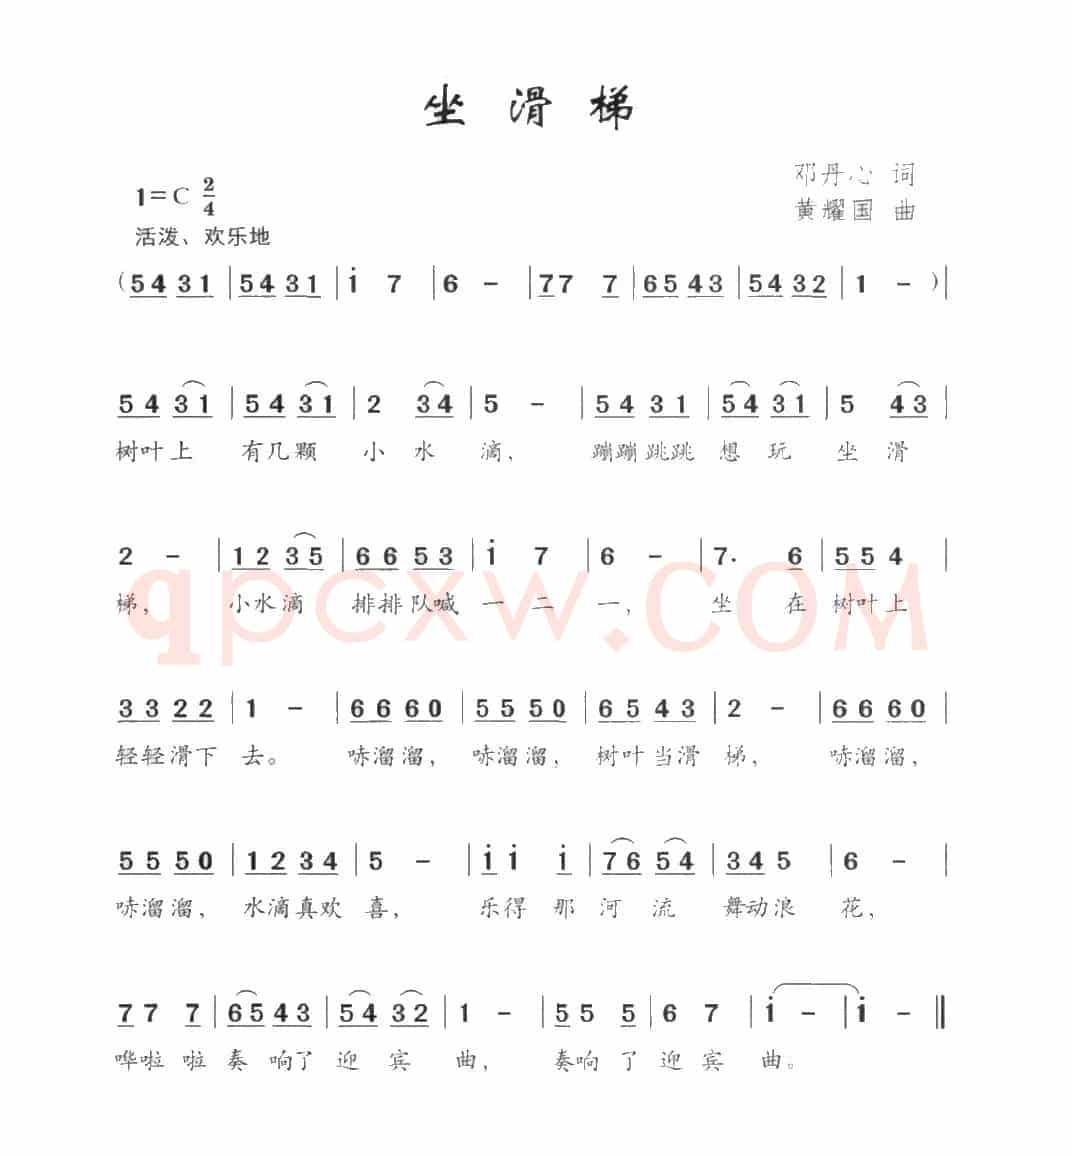 坐 滑 梯
邓丹心 词
1=C 2/4
黄耀国 曲
活泼、欢乐地
(5431|5431|i 7|6 -|77 7|6543|5432|1 -)|
5431|5431|2 34|5 -|5431|5431|5 43|
树叶上 有几颗 小水 滴、 蹦蹦跳跳 想玩 坐滑
2 -|1235|6653|i 7|6 -|7. 6|554|
梯, 小水滴 排排队喊 一二 一, 坐 在 树叶上
3322|1 -|6660|5550|6543|2 -|6660|
轻轻滑下 去。 哧溜溜, 哧溜溜, 树叶当滑 梯, 哧溜溜,
5550|1234|5 -|ii i|7654|345|6 -|
哧溜溜, 水滴真欢 喜, 乐得那 河流 舞动浪 花,
77 7|6543|5432|1 -|55 5|6 7|i -|i -‖
哗啦啦 奏响了 迎宾 曲, 奏响了 迎宾 曲。
qpcxw.COM